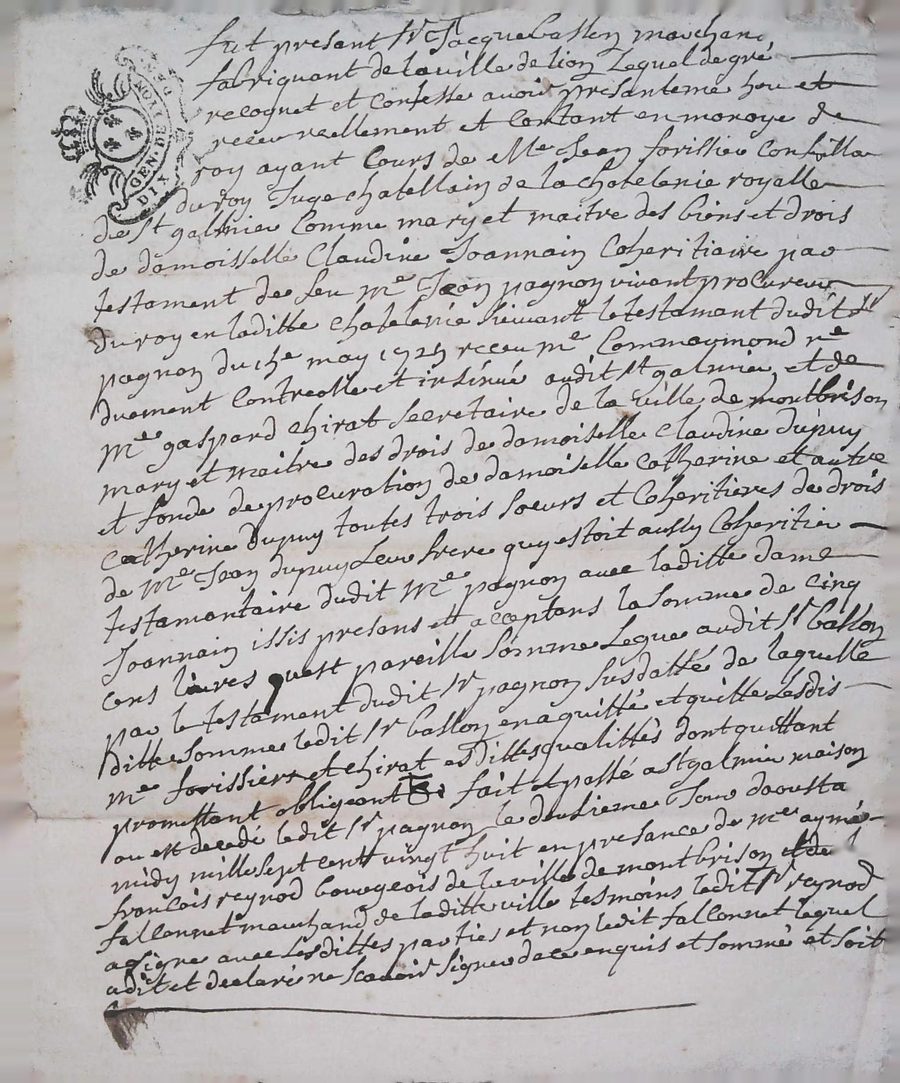 GEN. DE LYON
DIX DEN.
fut presant Sr Jacque ballon marchan
fabriquant de la ville de lion Lequel de gré
recognet et confesse avoir presanteme heu et
receu reellement et contant en monoye de
roy ayant Cours de Me Jean forissier Con
du roy Juge chatellain de la chatelenie royalle
de St galmier Comme mary et maitre des biens et drois
de damoisselle Claudine Joannain Coheritiaire par
testament de feu Me Jean pagnon vivant procureur
du roy en laditte chatelenie suivant le testament dudit Sr
pagnon du may receu Me Commarmond re
duement Controolle et insinué audit St galmier et de
Me gaspard Chirat Secretaire de la ville de montbrison
mary et maitre des drois de damoiselle Claudine dupuy
et fondé de procuration de damoiselle Catherine et autre
Catherine dupuy toutes trois Soeurs et Coheritieres de drois
de Me Jean dupuy Leur frere quy estoit aussy Coheritier
testamantaire dudit Me pagnon avec laditte dame
Joannain issis presans et acceptans la Somme de Cinq
Cens livres quest pareille Somme Legue audit Sr ballon
par le testament dudit Sr pagnon Susdatté de laquelle
ditte Somme ledit Sr ballon en a quitté et quitte Lesdis
Me forissier et Chirat esdittes qualittés dont quittant
promettant obligeant &. fait et passé a St galmier maison
ou est decedé ledit Sr pagnon le deusieme Jour daoust a
midy mille Sept cent vingt huit en presance de Me aymé
francois reynod bourgeois de la ville de montbrison et de
fallonnet marchand de laditte ville tesmoins ledit Sr reynod
a Signe avec Lesdittes parties et non ledit fallonnet lequel
a dit et declaré ne scavoir Signer de ce enquis et Sommé et Soit